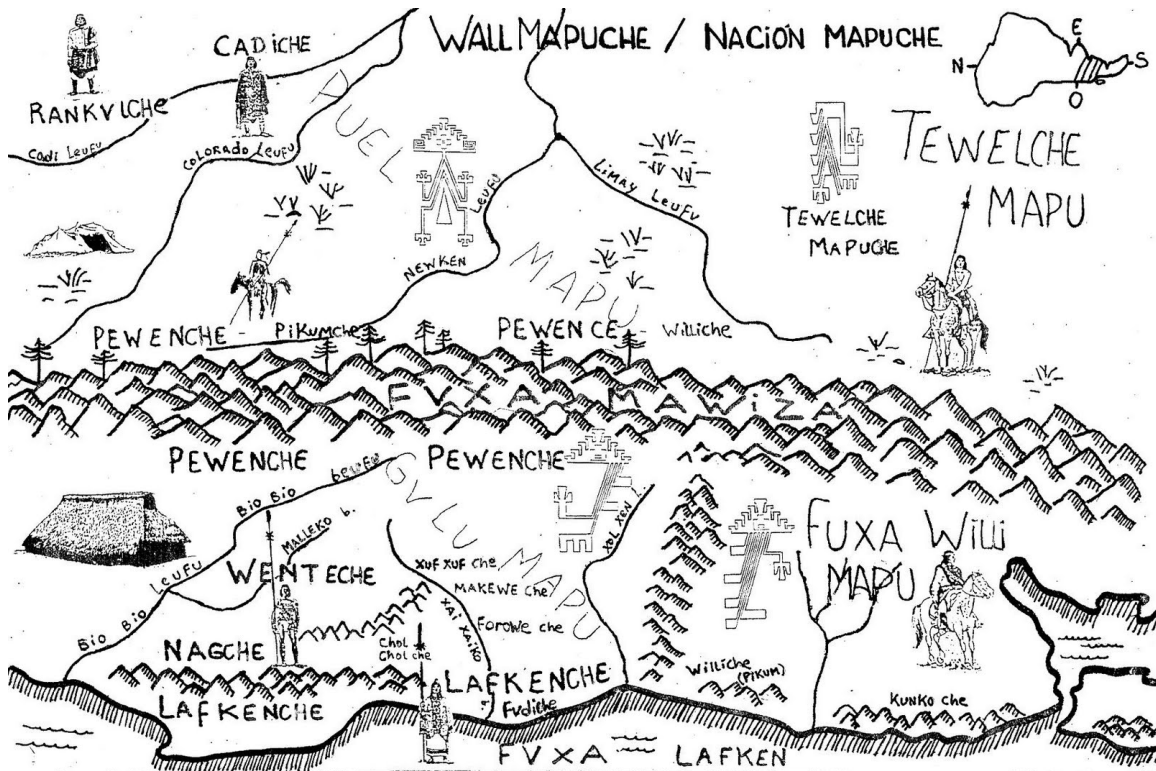 WALLMAPUCHE / NACIÓN MAPUCHE
E
N
S
O
CADICHE
RANKVLCHE
Cadi Leufu
COLORADO LEUFU
PUEL
MAPU
NEWKEN
LEUFU
LIMAY LEUFU
TEWELCHE
MAPUCHE
TEWELCHE
MAPU
PEWENCHE - PiKumche
PEWENCE - Williche
FVXA MAWIZA
PEWENCHE
PEWENCHE
BIO BIO LEUFU
BIO BIO LEUFU
MALLEKO b.
GVLU MAPU
XOL XEN
FUXA Willi
MAPU
WENTECHE
XUF XUF che
MAKEWE che
XAI XAIKO
Forowe che
NAGCHE
Chol
Chol che
LAFKENCHE
LAFKENCHE
Fvdiche
Williche
(PIKUM)
KUNKO che
FVXA LAFKEN